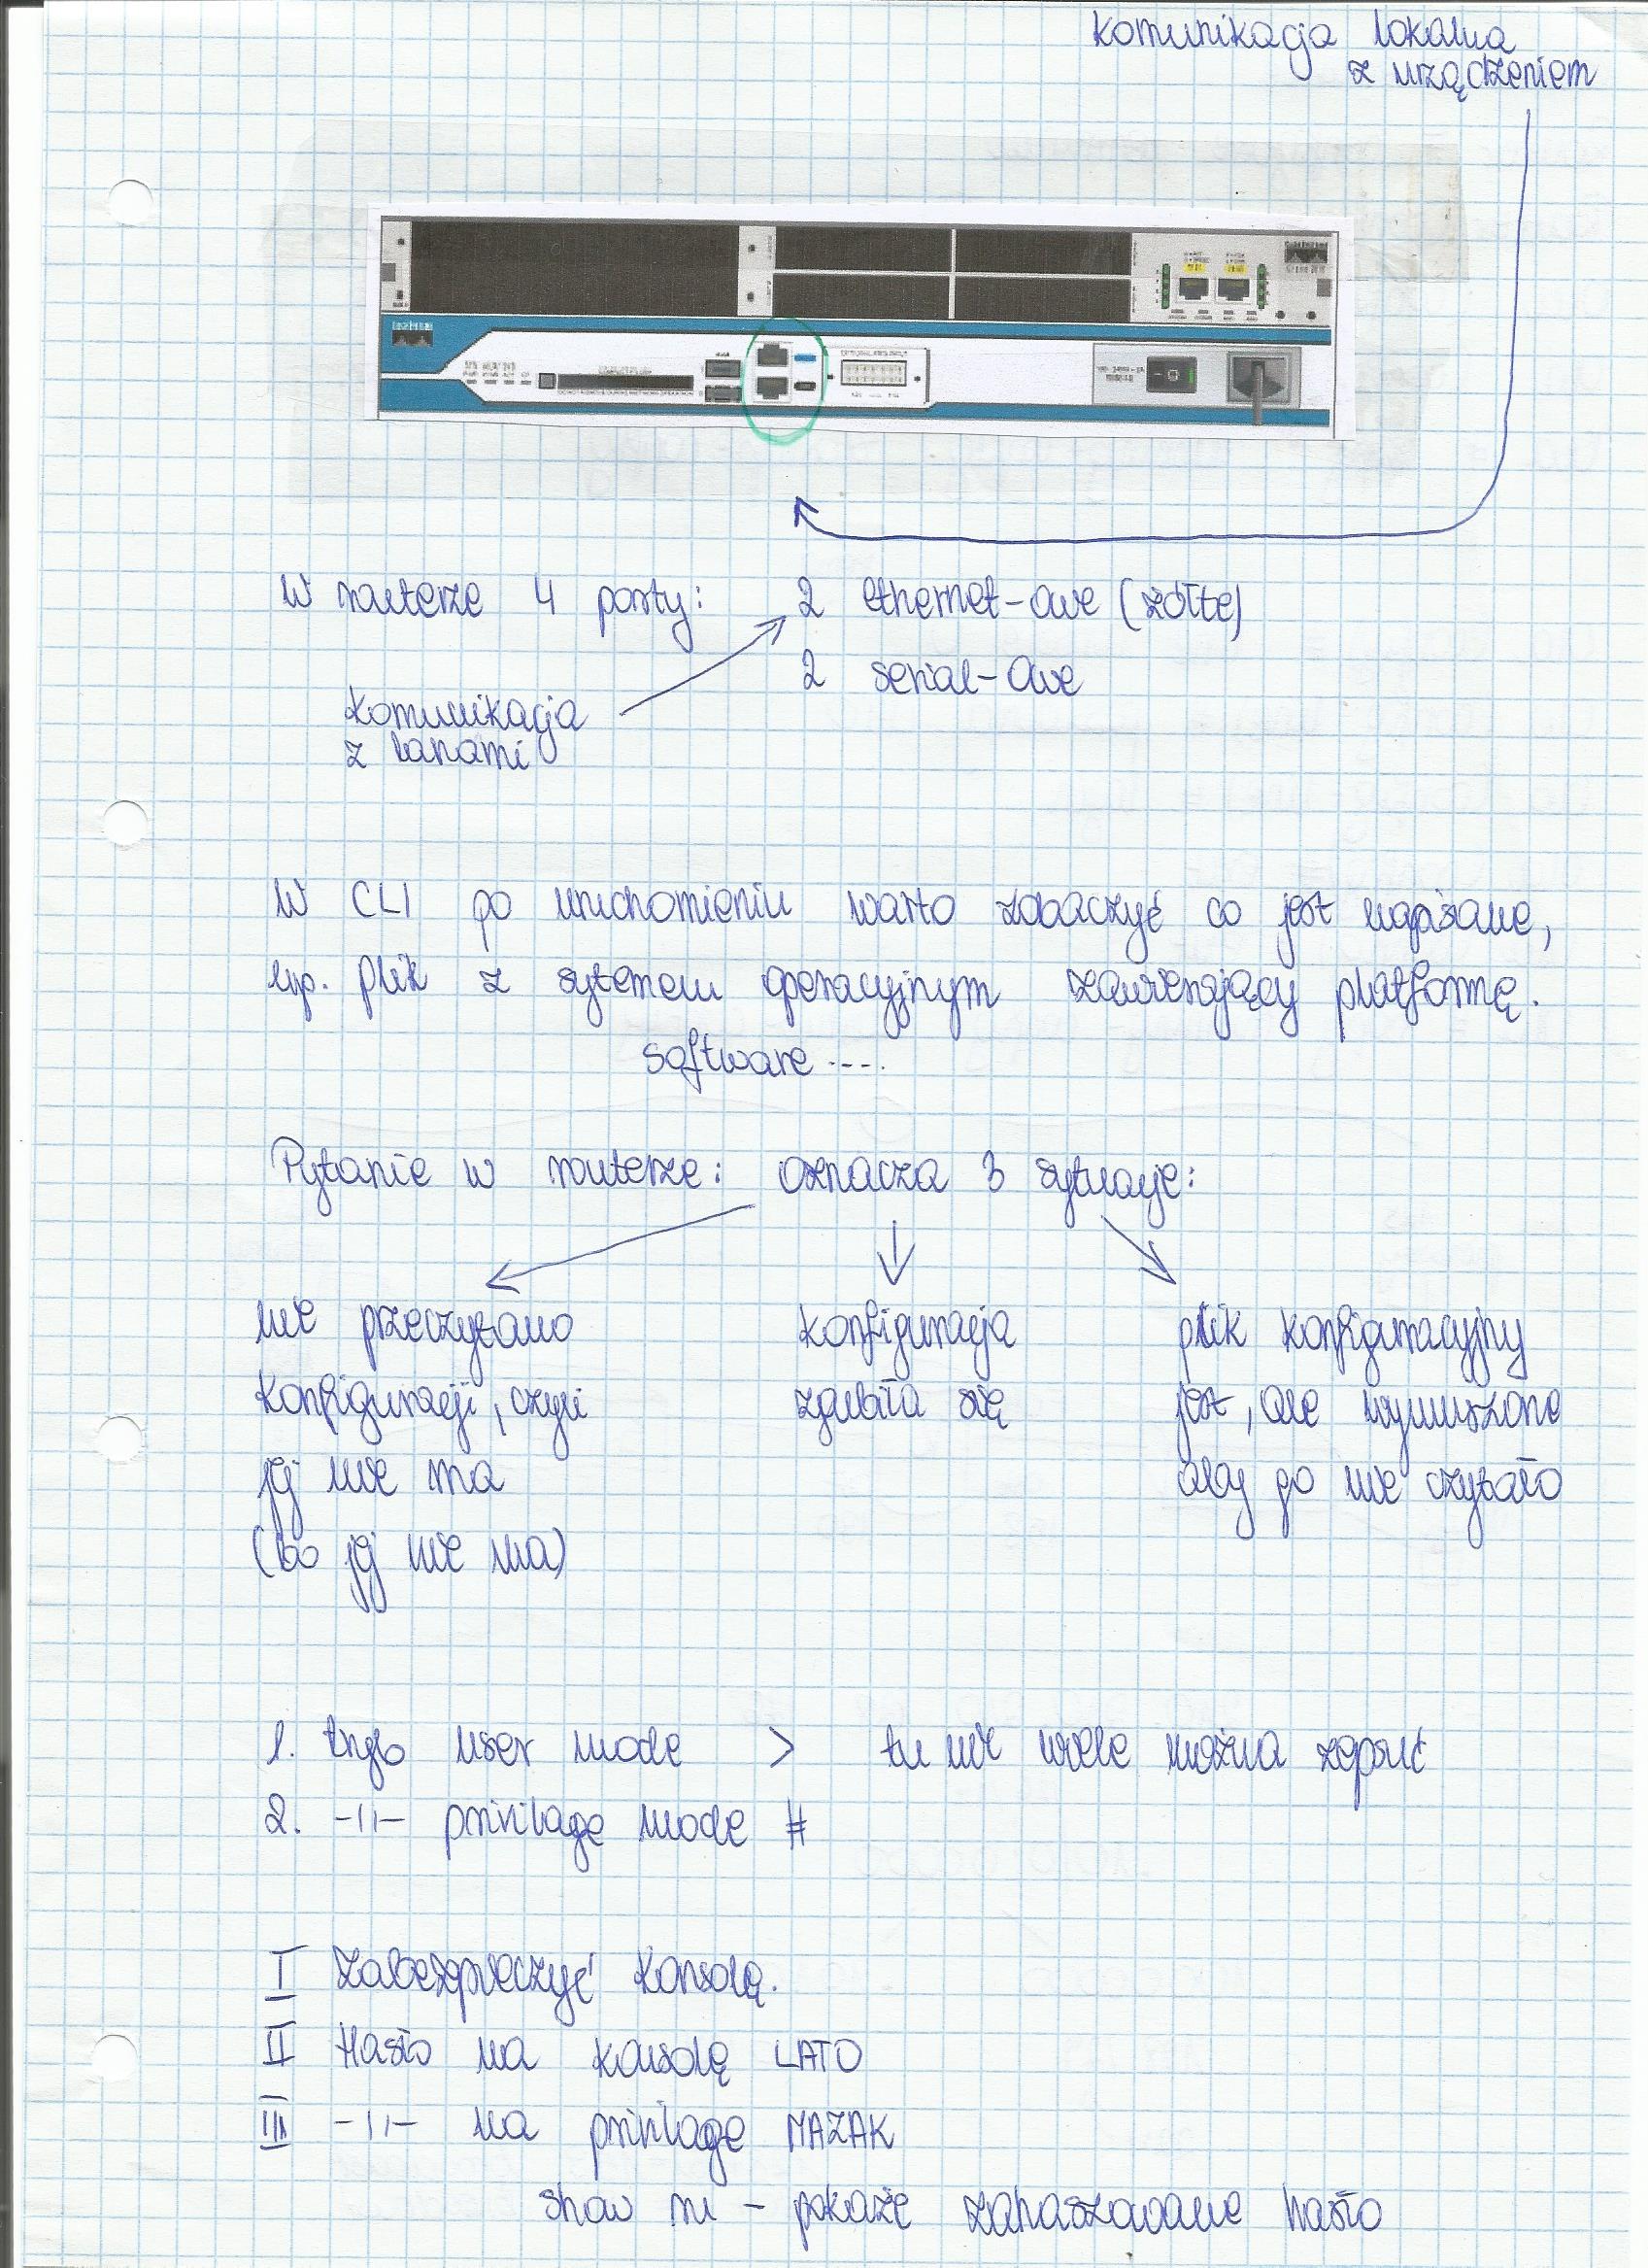 Komunikacja lokalna
z urządzeniem
W routerze 4 porty: 2 ethernet-owe (żółte)
2 serial-owe
Komunikacja
z lanami
W CLI po uruchomieniu warto zobaczyć co jest napisane,
np. plik z sytemem operacyjnym zawierający platformę.
software ---.
Pytanie w routerze: oznacza 3 sytuacje:
nie przeczytano
konfiguracji, czyli
jej nie ma
(bo jej nie ma)
konfiguracja
zgubiła się
plik konfiguracyjny
jest, ale wymuszone
aby go nie czytało
1. tryb user mode > tu nie wiele można zepsuć
2. -||- privilage mode #
I Zabezpieczyć konsolę.
II Hasło na konsolę LATO
III -||- na privilage MAZAK
show ru - pokaże zahaszowane hasło